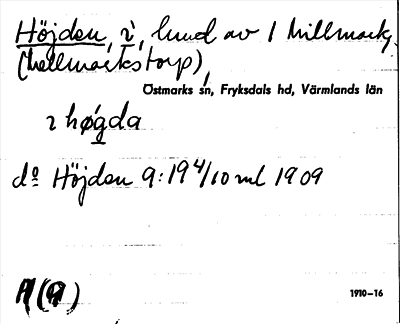 Höjden, i, hmd av 1 Millmark,
(hellmarkstorp),
Östmarks sn, Fryksdals hd, Värmlands län
2 høgda
do Höjden 9:19 4/10 ml 1909
1910–16